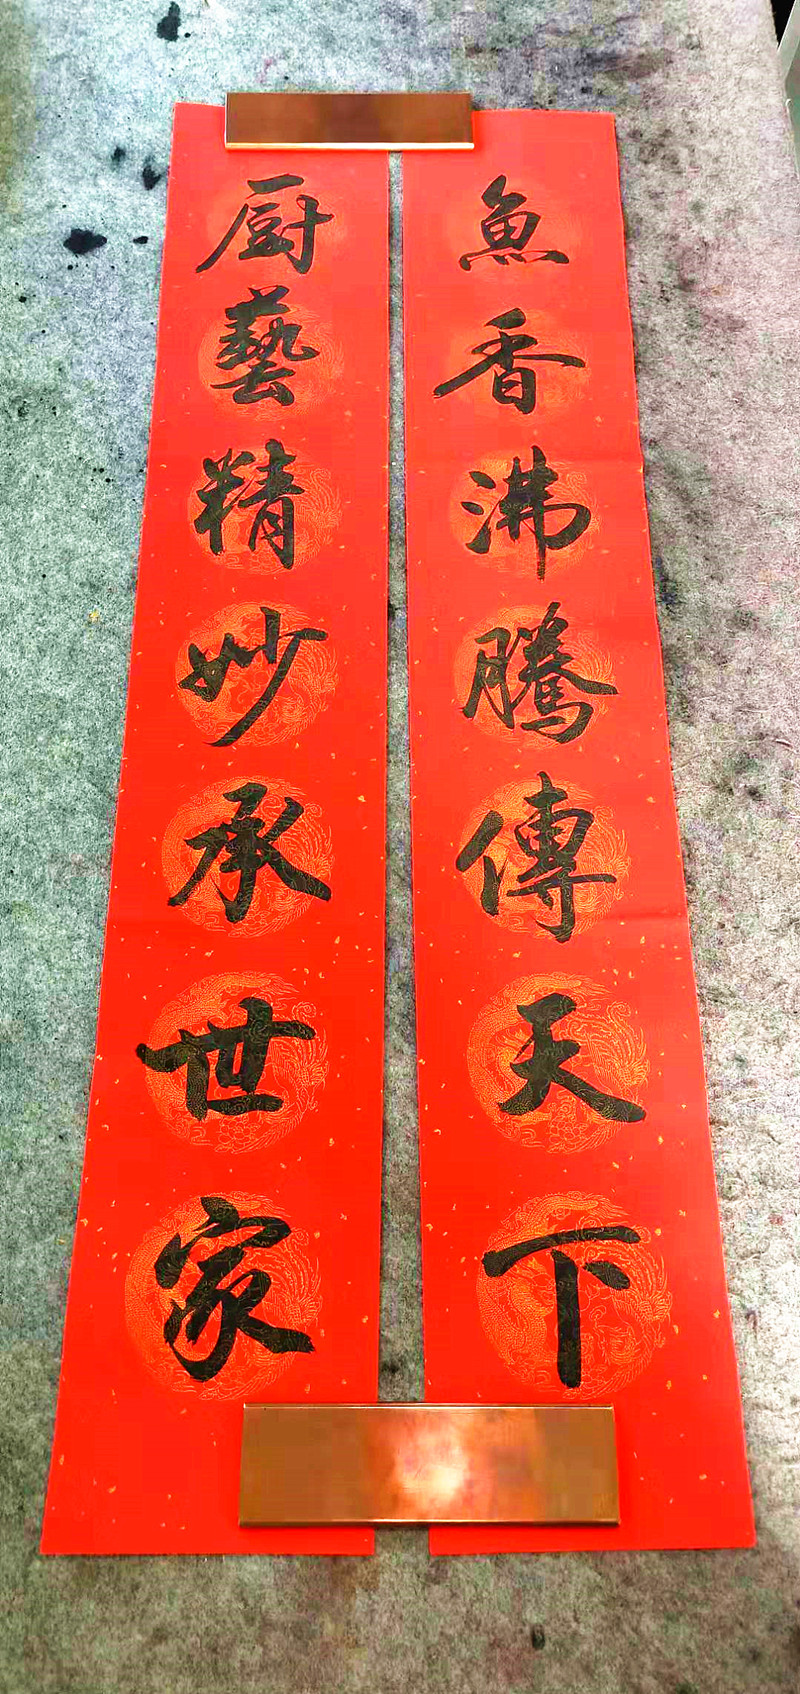 魚香沸騰傳天下
厨藝精妙承世家